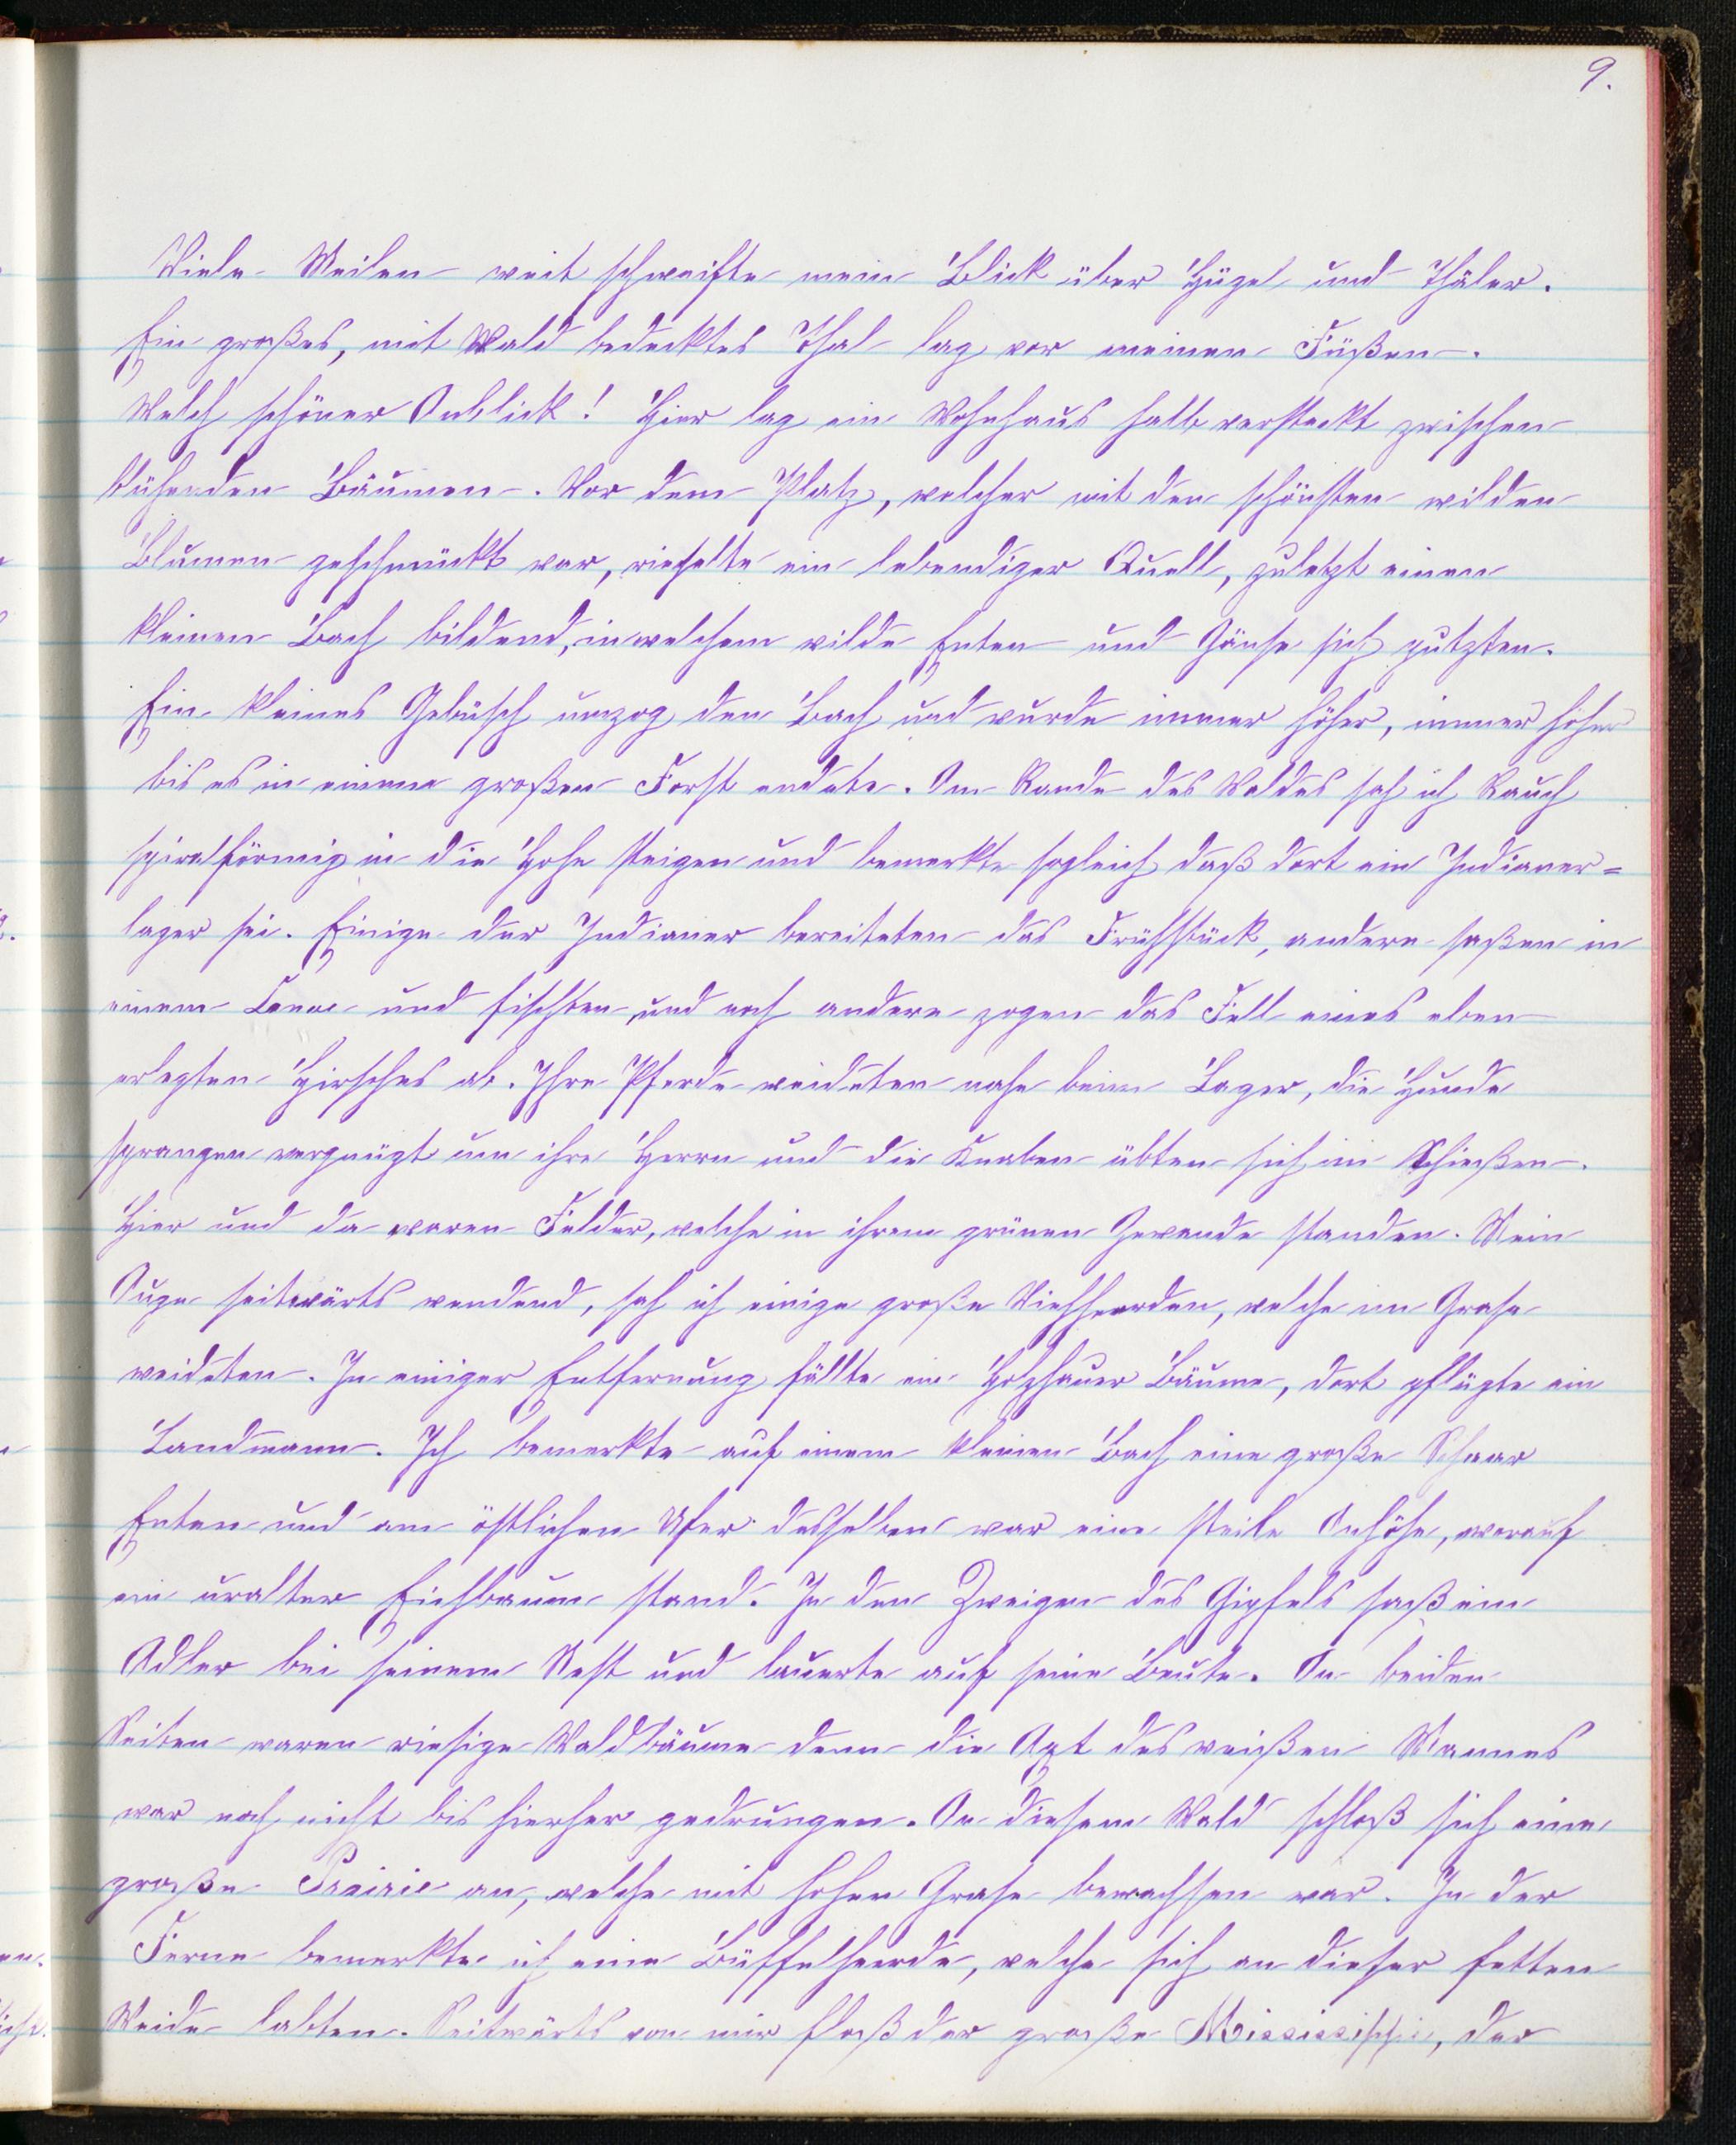 9.
Viele Meilen weit schweifte mein Blick über Hügel und Thäler.
Ein großes, mit Wald bedecktes Thal lag vor meinen Füßen.
Welch schöner Anblick! Hier lag ein Wohnhaus halb versteckt zwischen
blühenden Bäumen. Vor dem Platz, welcher mit den schönsten wilden
Blumen geschmückt war, rieselte ein lebendiger Quell, zuletzt einen
kleinen Bach bildend, in welchem wilde Enten und Gänse sich putzten.
Ein kleines Gebüsch umzog den Bach und wurde immer höher, immer höher
bis es in einem großen Forst endete. Am Rande des Waldes sah ich Rauch
spiralförmig in die Höhe steigen und bemerkte sogleich daß dort ein Indianer=
lager sei. Einige der Indianer bereiteten das Frühstück, andere saßen in
einem Canoe und fischten und noch andere zogen das Fell eines eben
erlegten Hirsches ab. Ihre Pferde weideten nahe beim Lager, die Hunde
sprangen vergnügt um ihre Herrn und die Knaben übten sich im Schießen.
Hier und da waren Felder, welche in ihrem grünen Gewande standen. Mein
Auge seitwärts wendend, sah ich einige große Viehheerden, welche im Grase
weideten. In einiger Entfernung fällte ein Holzhauer Bäume, dort pflügte ein
Landmann. Ich bemerkte auf einem kleinen Bach eine große Schaar
Enten und am östlichen Ufer desselben war eine steile Anhöhe, worauf
ein uralter Eichbaum stand. In den Zweigen des Gipfels saß ein
Adler bei seinem Nest und lauerte auf seine Beute. An beiden
Seiten waren riesige Waldbäume denn die Axt des weißen Mannes
war noch nicht bis hierher gedrungen. An diesem Wald schloß sich eine
große Prairie an, welche mit hohen Grase bewachsen war. In der
Ferne bemerkte ich eine Büffelheerde, welche sich an dieser fetten
Weide labten. Seitwärts von mir floß der große Mississippi, der